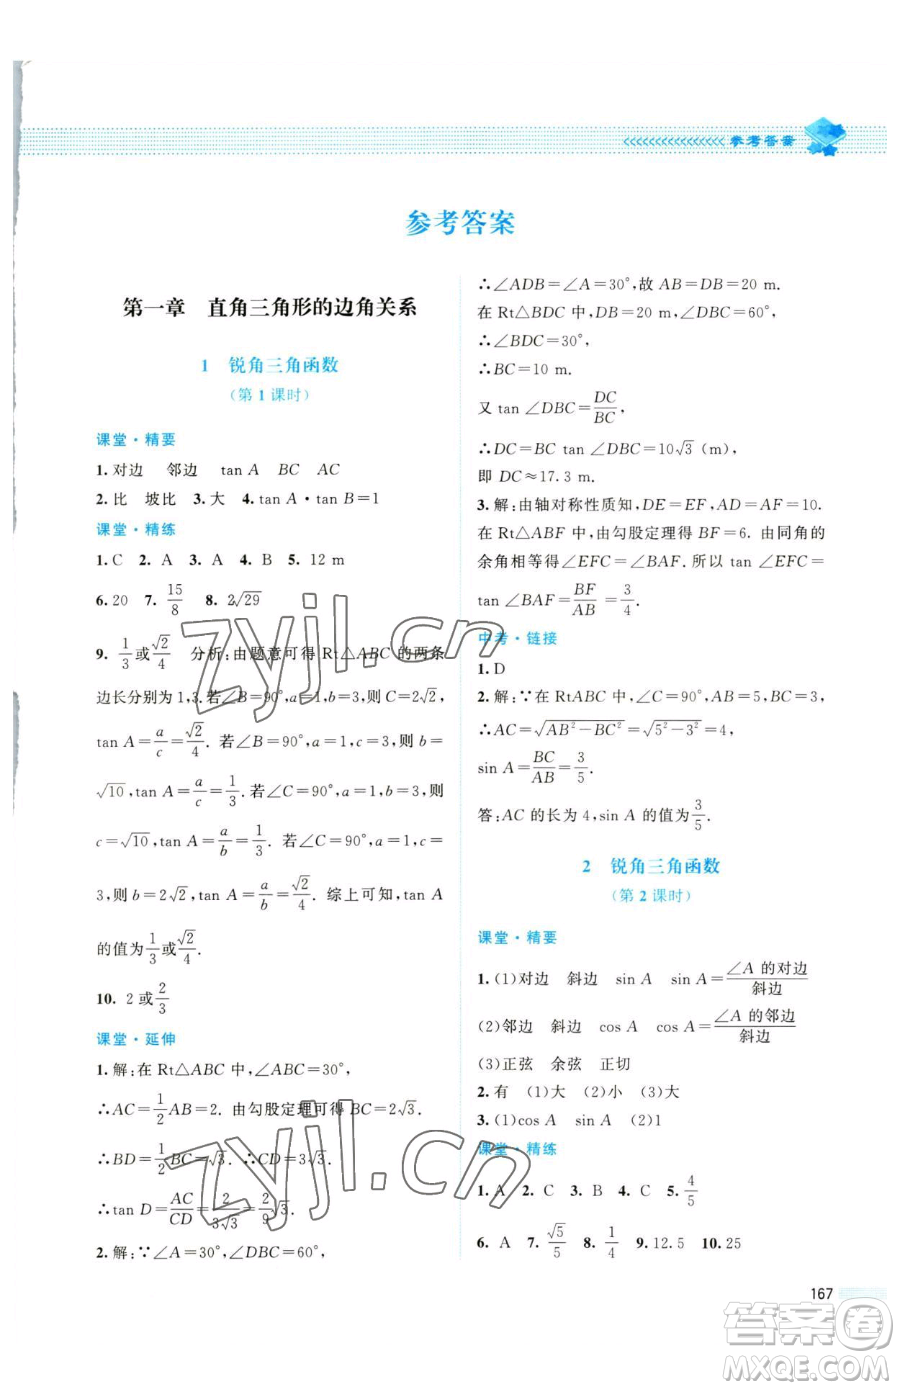 参考答案
参考答案
第一章 直角三角形的边角关系
1 锐角三角函数
(第1课时)
课堂·精要
1.对边 邻边 tan A BC AC
2.比 坡比 3.大 4.tan A·tan B=1
课堂·精练
1.C 2.A 3.A 4.B 5.12 m
6.20 7.15/8 8.2√29
9.1/3或√2/4 分析:由题意可得Rt△ABC的两条
边长分别为1,3.若∠B=90°,a=1,b=3,则C=2√2,
tan A=a/c=√2/4.若∠B=90°,a=1,c=3,则b=
√10,tan A=a/c=1/3.若∠C=90°,a=1,b=3,则
c=√10,tan A=a/b=1/3.若∠C=90°,a=1,c=
3,则b=2√2,tan A=a/b=√2/4.综上可知,tan A
的值为1/3或√2/4.
10.2或2/3
课堂·延伸
1.解:在Rt△ABC中,∠ABC=30°,
∴AC=1/2AB=2.由勾股定理可得BC=2√3.
∴BD=1/2BC=√3.∴CD=3√3.
∴tan D=AC/CD=2/3√3=2/9√3.
2.解:∵∠A=30°,∠DBC=60°,
∴∠ADB=∠A=30°,故AB=DB=20 m.
在Rt△BDC中,DB=20 m,∠DBC=60°,
∴∠BDC=30°.
∴BC=10 m.
又tan∠DBC=DC/BC,
∴DC=BC tan∠DBC=10√3(m).
即DC≈17.3 m.
3.解:由轴对称性质知,DE=EF,AD=AF=10.
在Rt△ABF中,由勾股定理得BF=6.由同角的
余角相等得∠EFC=∠BAF.所以tan∠EFC=
tan∠BAF=BF/AB=3/4.
中考·链接
1.D
2.解:∵在RtABC中,∠C=90°,AB=5,BC=3,
∴AC=√AB²-BC²=√5²-3²=4.
sin A=BC/AB=3/5.
答:AC的长为4,sin A的值为3/5.
2 锐角三角函数
(第2课时)
课堂·精要
1.(1)对边 斜边 sin A sin A=∠A的对边/斜边
(2)邻边 斜边 cos A cos A=∠A的邻边/斜边
(3)正弦 余弦 正切
2.有 (1)大 (2)小 (3)大
3.(1)cos A sin A (2)1
课堂·精练
1.A 2.C 3.B 4.C 5.4/5
6.A 7.√5/5 8.1/4 9.12.5 10.25
167
zyjl.cn
zyjl.cn
答案圈
MXQE.COM